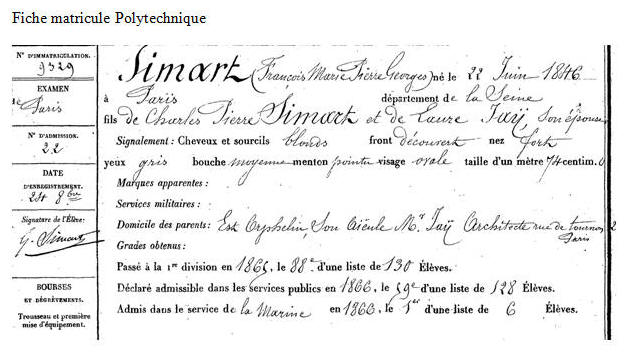 Fiche matricule Polytechnique
N° D'IMMATRICULATION.
9329
EXAMEN
Paris
N° D'ADMISSION.
22
DATE
D'ENREGISTREMENT.
24 8bre
Signature de l'Élève:
G. Simart
BOURSES
ET DÉGRÈVEMENTS.
Trousseau et première
mise d'équipement.
Simart (François Marie Pierre Georges) né le 22 Juin 1846
à Paris département de la Seine
fils de Charles Pierre Simart et de Laure Jaÿ, son épouse
Signalement: Cheveux et sourcils blonds front découvert nez fort
yeux gris bouche moyenne menton pointu visage ovale taille d'un mètre 74 centim. 0
Marques apparentes:
Services militaires:
Domicile des parents: Est Orphelin, Son aïeule Mr Jaÿ Architecte rue de tournon 2
Paris
Grades obtenus:
Passé à la 1re division en 1865, le 88e d'une liste de 130 Élèves.
Déclaré admissible dans les services publics en 1866, le 59e d'une liste de 128 Élèves.
Admis dans le service de la Marine en 1866, le 1er d'une liste de 6 Élèves.